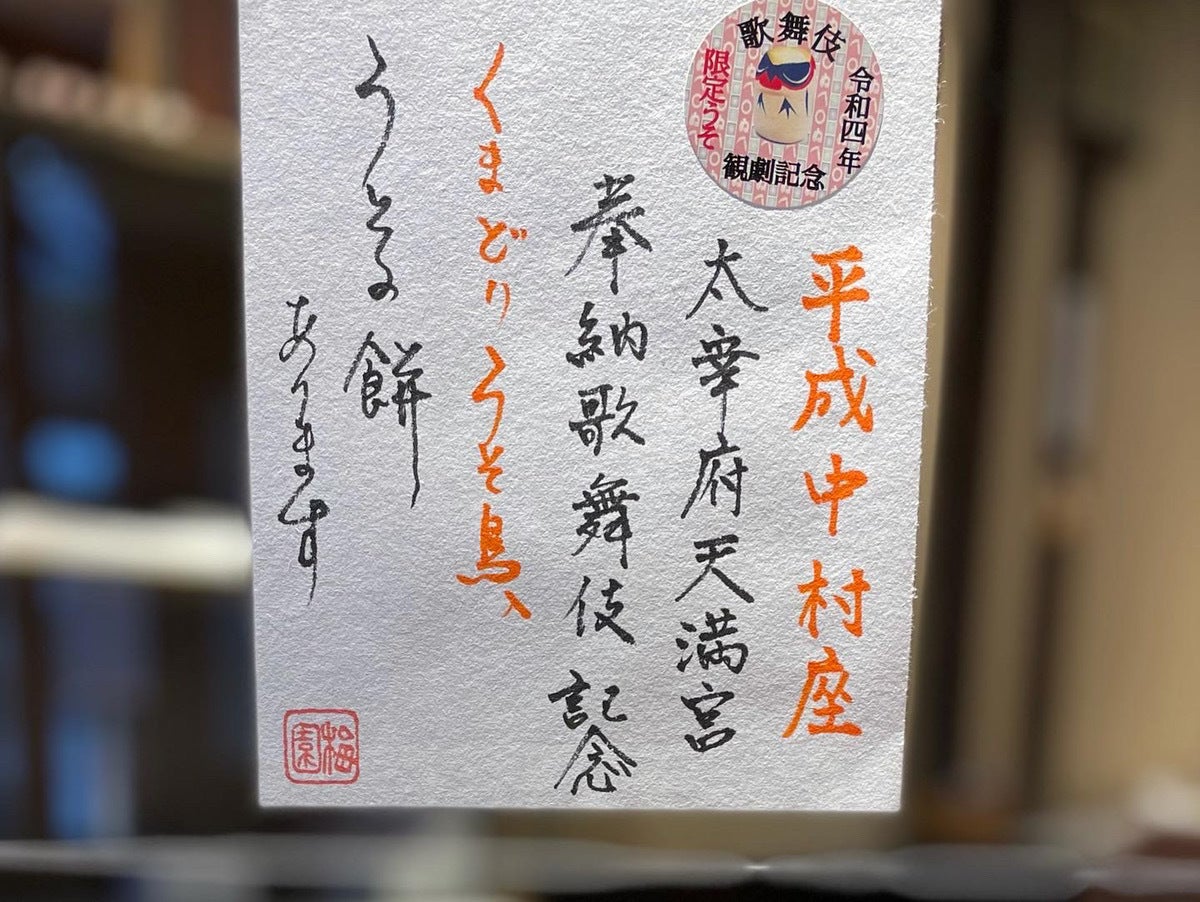 歌舞伎
令和四年
限定うそ
観劇記念
平成中村座
太宰府天満宮
奉納歌舞伎 記念
くまどりうそ鳥入
うその餅
あります
梅園